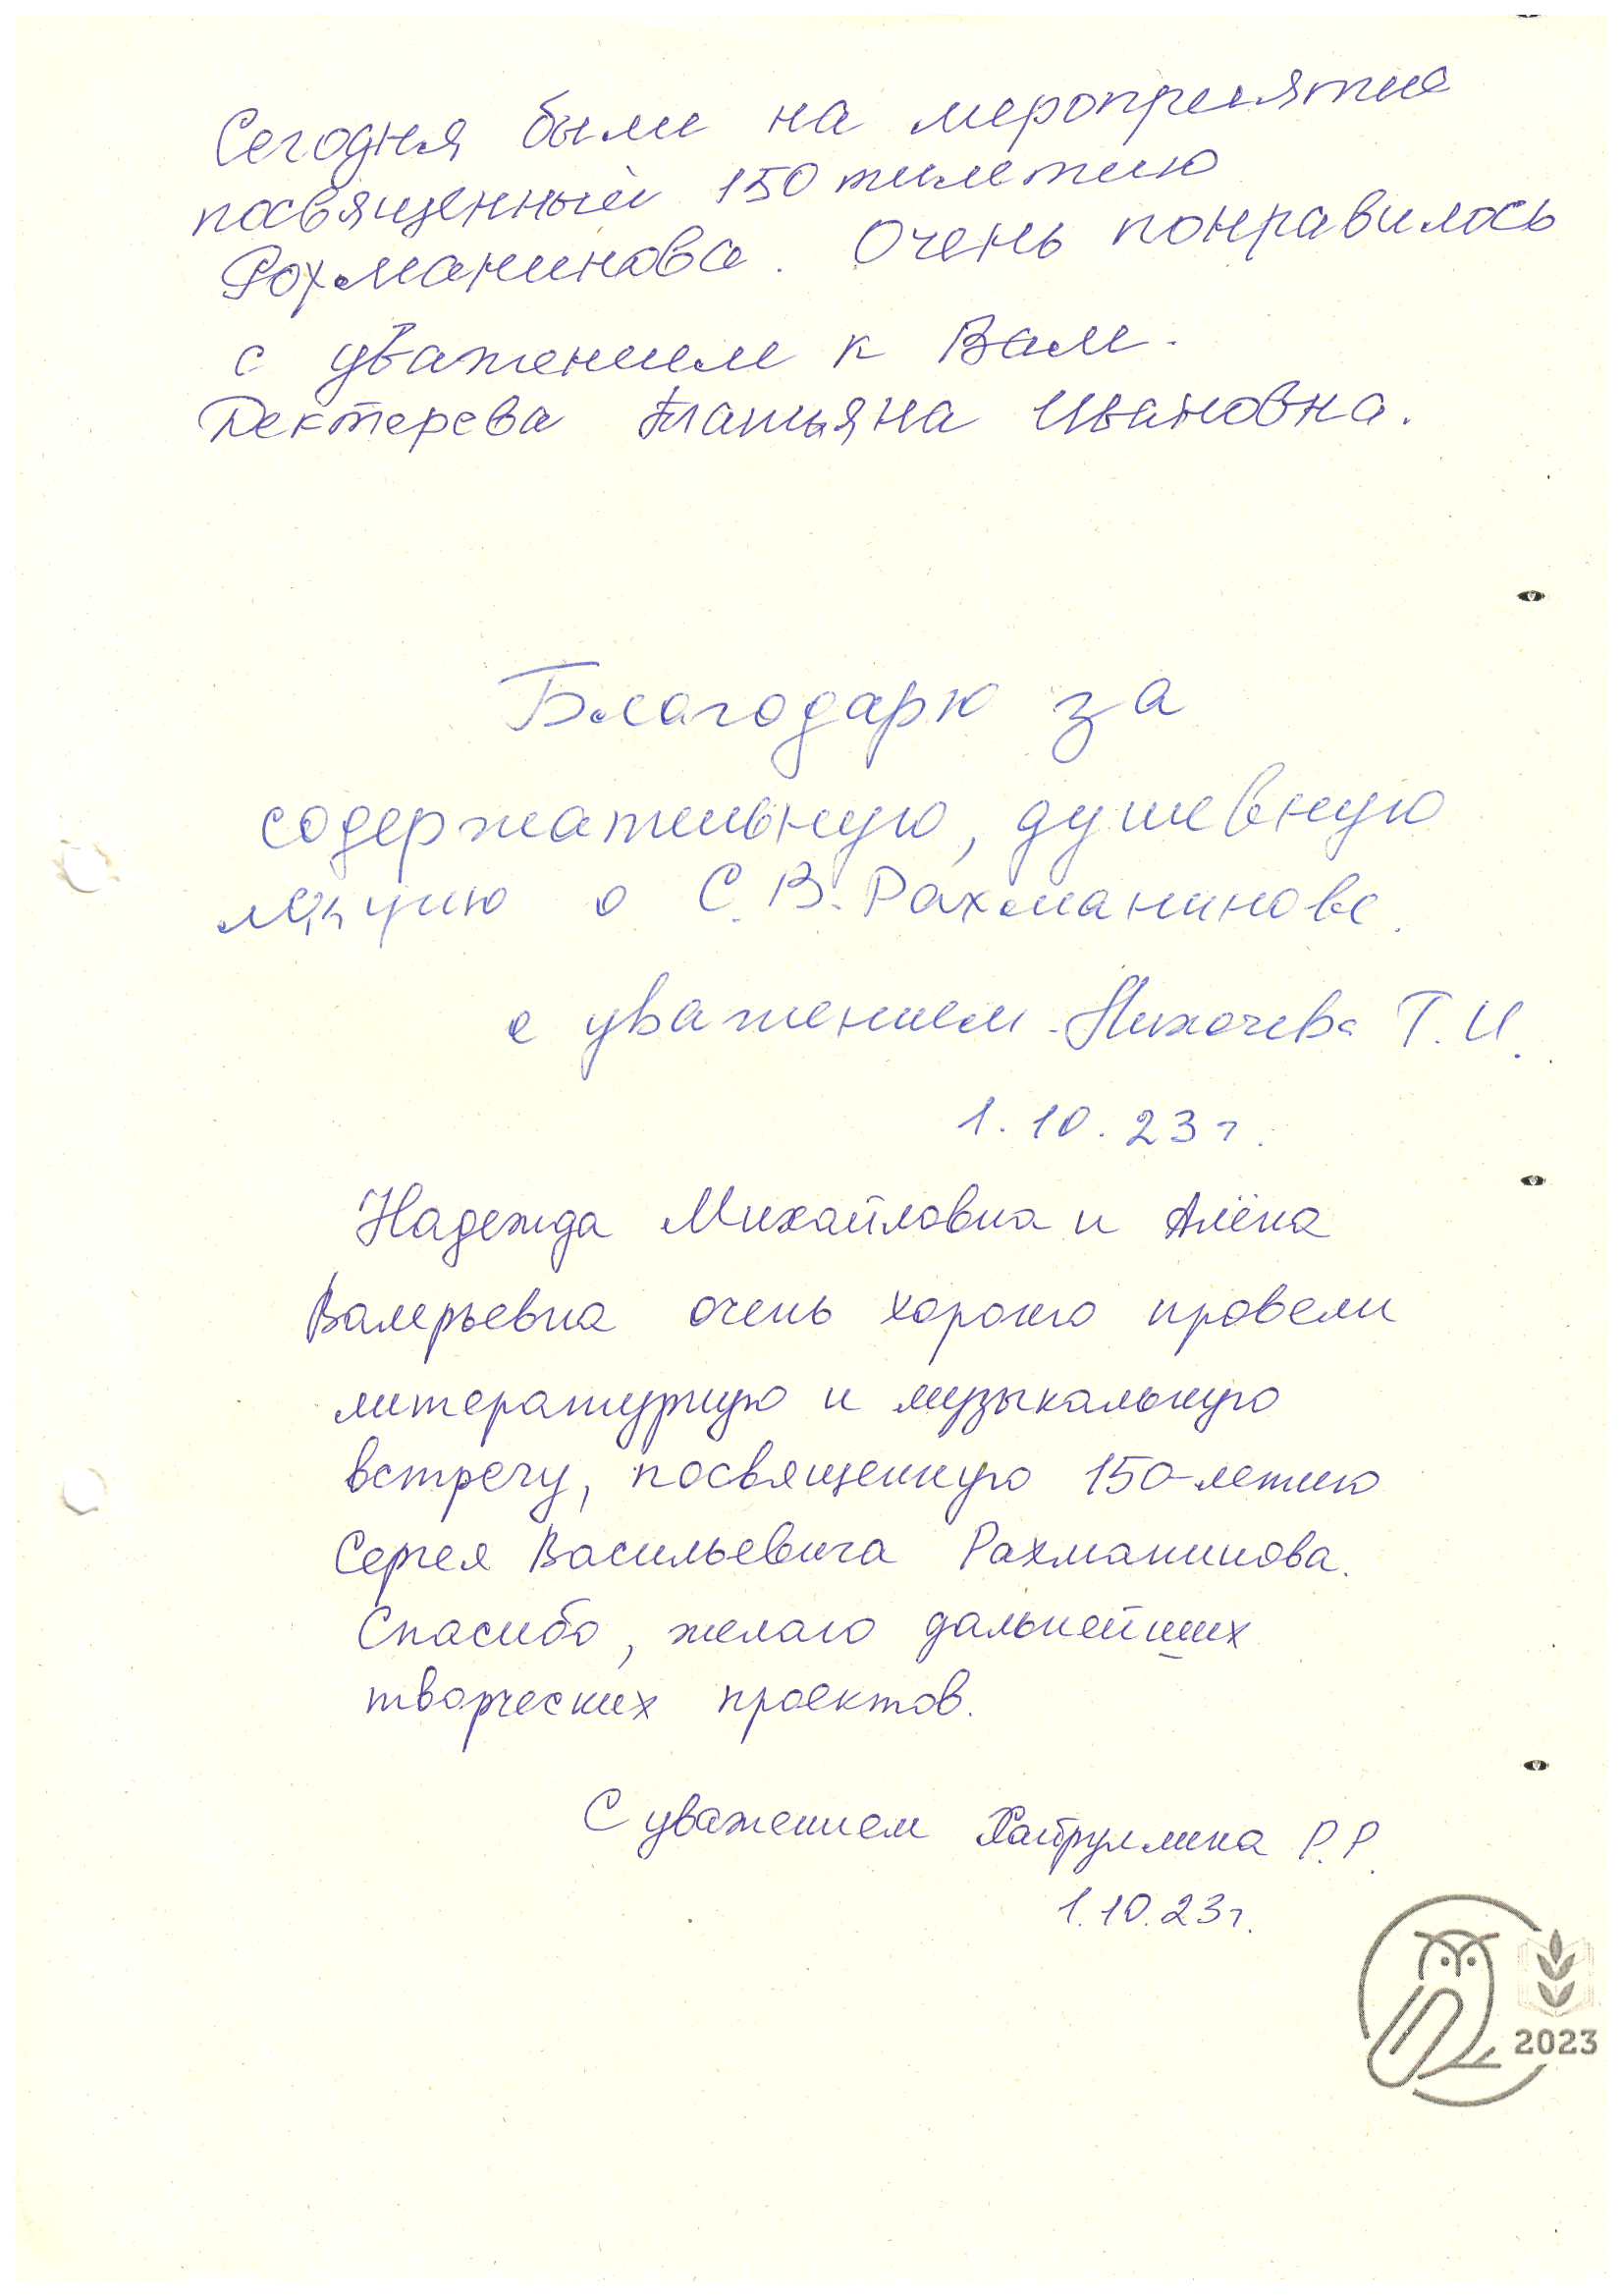 Сегодня были на мероприятие
посвященный 150 тилетию
Рохманинова. Очень понравилось
с уважением к Вам.
Дектерева Татьяна Ивановна.
Благодарю за
содержательную, душевную
лекцию о С.В. Рахманинове.
с уважением Т.И.
1.10.23г.
Надежда Михайловна и Алёна
Валерьевна очень хорошо провели
литературную и музыкальную
встречу, посвященную 150-летию
Сергея Васильевича Рахманинова.
Спасибо, желаю дальнейших
творческих проектов.
С уважением Хайруллина Р.Р.
1.10.23г.
2023